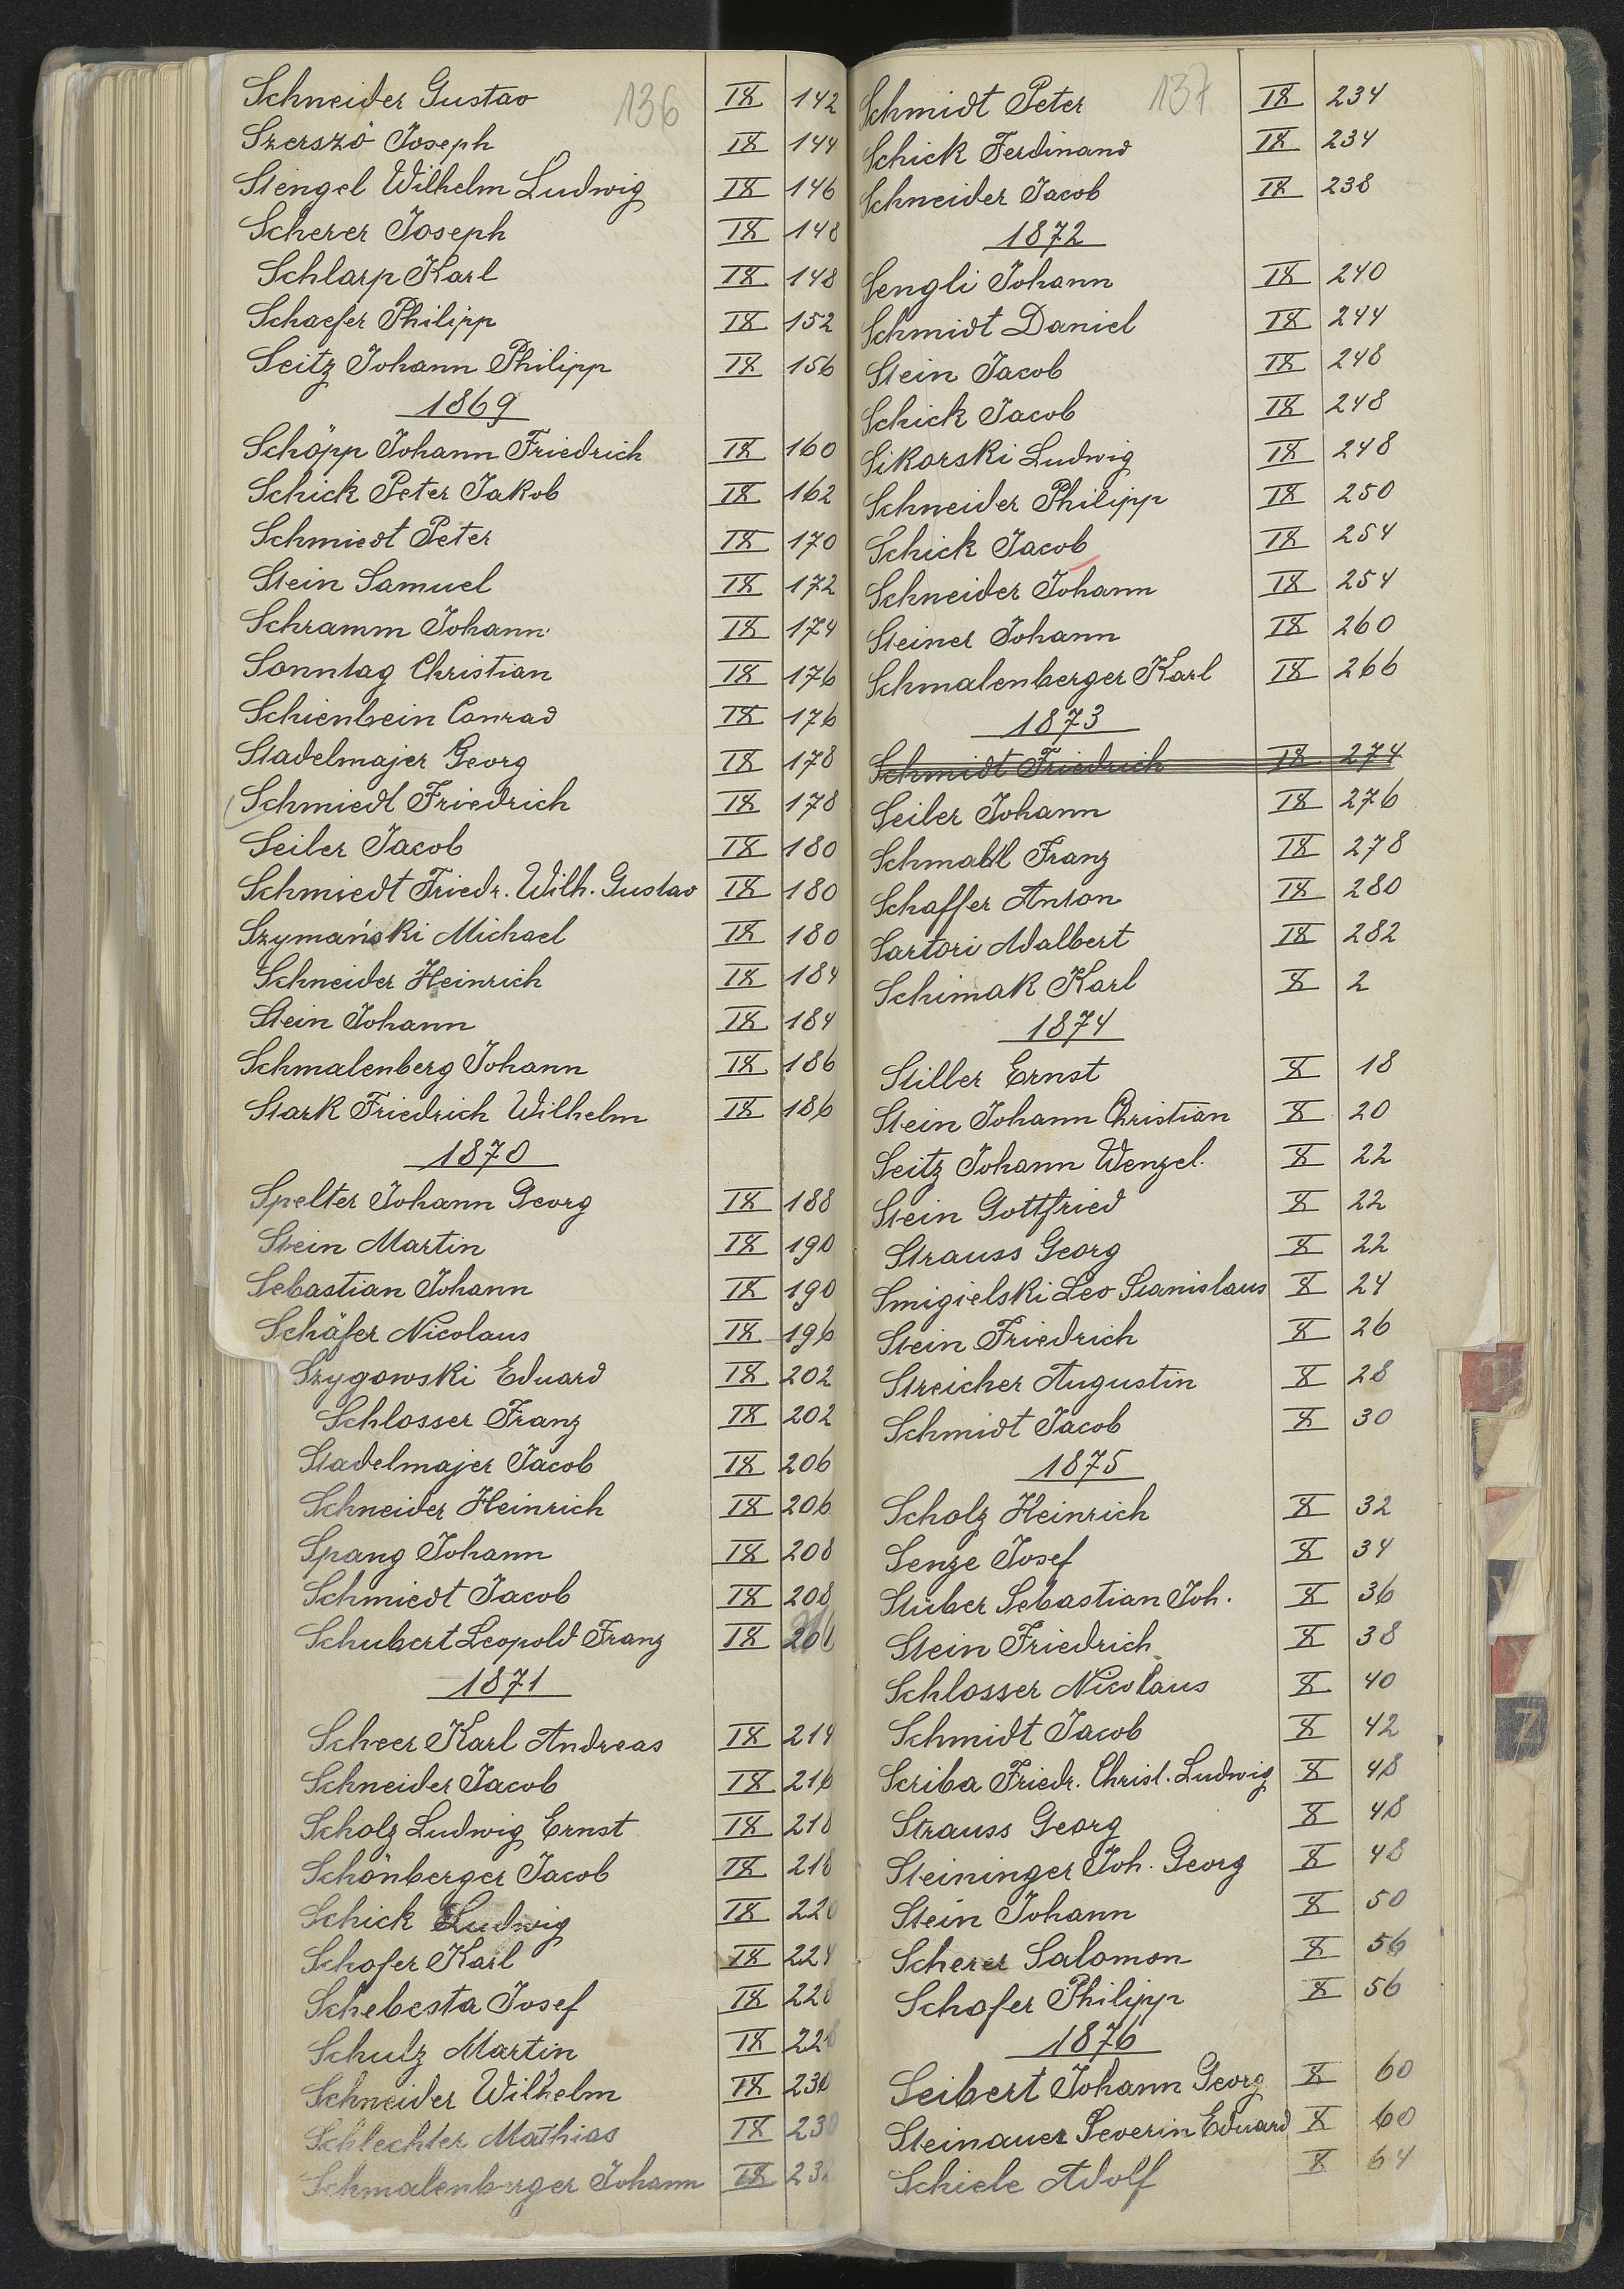 136
Schneider Gustav IX 142
Szerszó Joseph IX 144
Stengel Wilhelm Ludwig IX 146
Scherer Joseph IX 148
Schlarp Karl IX 148
Schaefer Philipp IX 152
Seitz Johann Philipp IX 156
1869
Schöpp Johann Friedrich IX 160
Schick Peter Jakob IX 162
Schmiedt Peter IX 170
Stein Samuel IX 172
Schramm Johann IX 174
Sonntag Christian IX 176
Schienbein Conrad IX 176
Stadelmajer Georg IX 178
Schmiedt Friedrich IX 178
Seiler Jacob IX 180
Schmiedt Friedr. Wilh. Gustav IX 180
Szymański Michael IX 180
Schneider Heinrich IX 184
Stein Johann IX 184
Schmalenberg Johann IX 186
Stark Friedrich Wilhelm IX 186
1870
Spelter Johann Georg IX 188
Stein Martin IX 190
Sebastian Johann IX 190
Schäfer Nicolaus IX 196
Szygowski Eduard IX 202
Schlosser Franz IX 202
Stadelmajer Jacob IX 206
Schneider Heinrich IX 206
Spang Johann IX 208
Schmiedt Jacob IX 208
Schubert Leopold Franz IX
1871
Scheer Karl Andreas IX 214
Schneider Jacob IX 216
Scholz Ludwig Ernst IX 218
Schönberger Jacob IX 218
Schick Ludwig IX 220
Schofer Karl IX 224
Schebesta Josef IX 228
Schulz Martin IX 228
Schneider Wilhelm IX 230
Schlechter Mathias IX 230
Schmalenberger Johann IX
137
Schmidt Peter IX 234
Schick Ferdinand IX 234
Schneider Jacob IX 238
1872
Sengli Johann IX 240
Schmidt Daniel IX 244
Stein Jacob IX 248
Schick Jacob IX 248
Sikorski Ludwig IX 248
Schneider Philipp IX 250
Schick Jacob IX 254
Schneider Johann IX 254
Steiner Johann IX 260
Schmalenberger Karl IX 266
1873
Schmidt Friedrich IX 274
Seiler Johann IX 276
Schmahl Franz IX 278
Schaffer Anton IX 280
Sartori Adalbert IX 282
Schimak Karl X 2
1874
Stiller Ernst X 18
Stein Johann Christian X 20
Seitz Johann Wenzel. X 22
Stein Gottfried X 22
Strauss Georg X 22
Smigielski Leo Stanislaus X 24
Stein Friedrich X 26
Streicher Augustin X 28
Schmidt Jacob X 30
1875
Scholz Heinrich X 32
Senze Josef X 34
Stüber Sebastian Joh. X 36
Stein Friedrich X 38
Schlosser Nicolaus X 40
Schmidt Jacob X 42
Scriba Friedr. Christ. Ludwig X 48
Strauss Georg X 48
Steininger Joh. Georg X 48
Stein Johann X 50
Scherer Salomon X 56
Schofer Philipp X 56
1876
Seibert Johann Georg X 60
Steinauer Severin Eduard X 60
Schiele Adolf X 64
Z